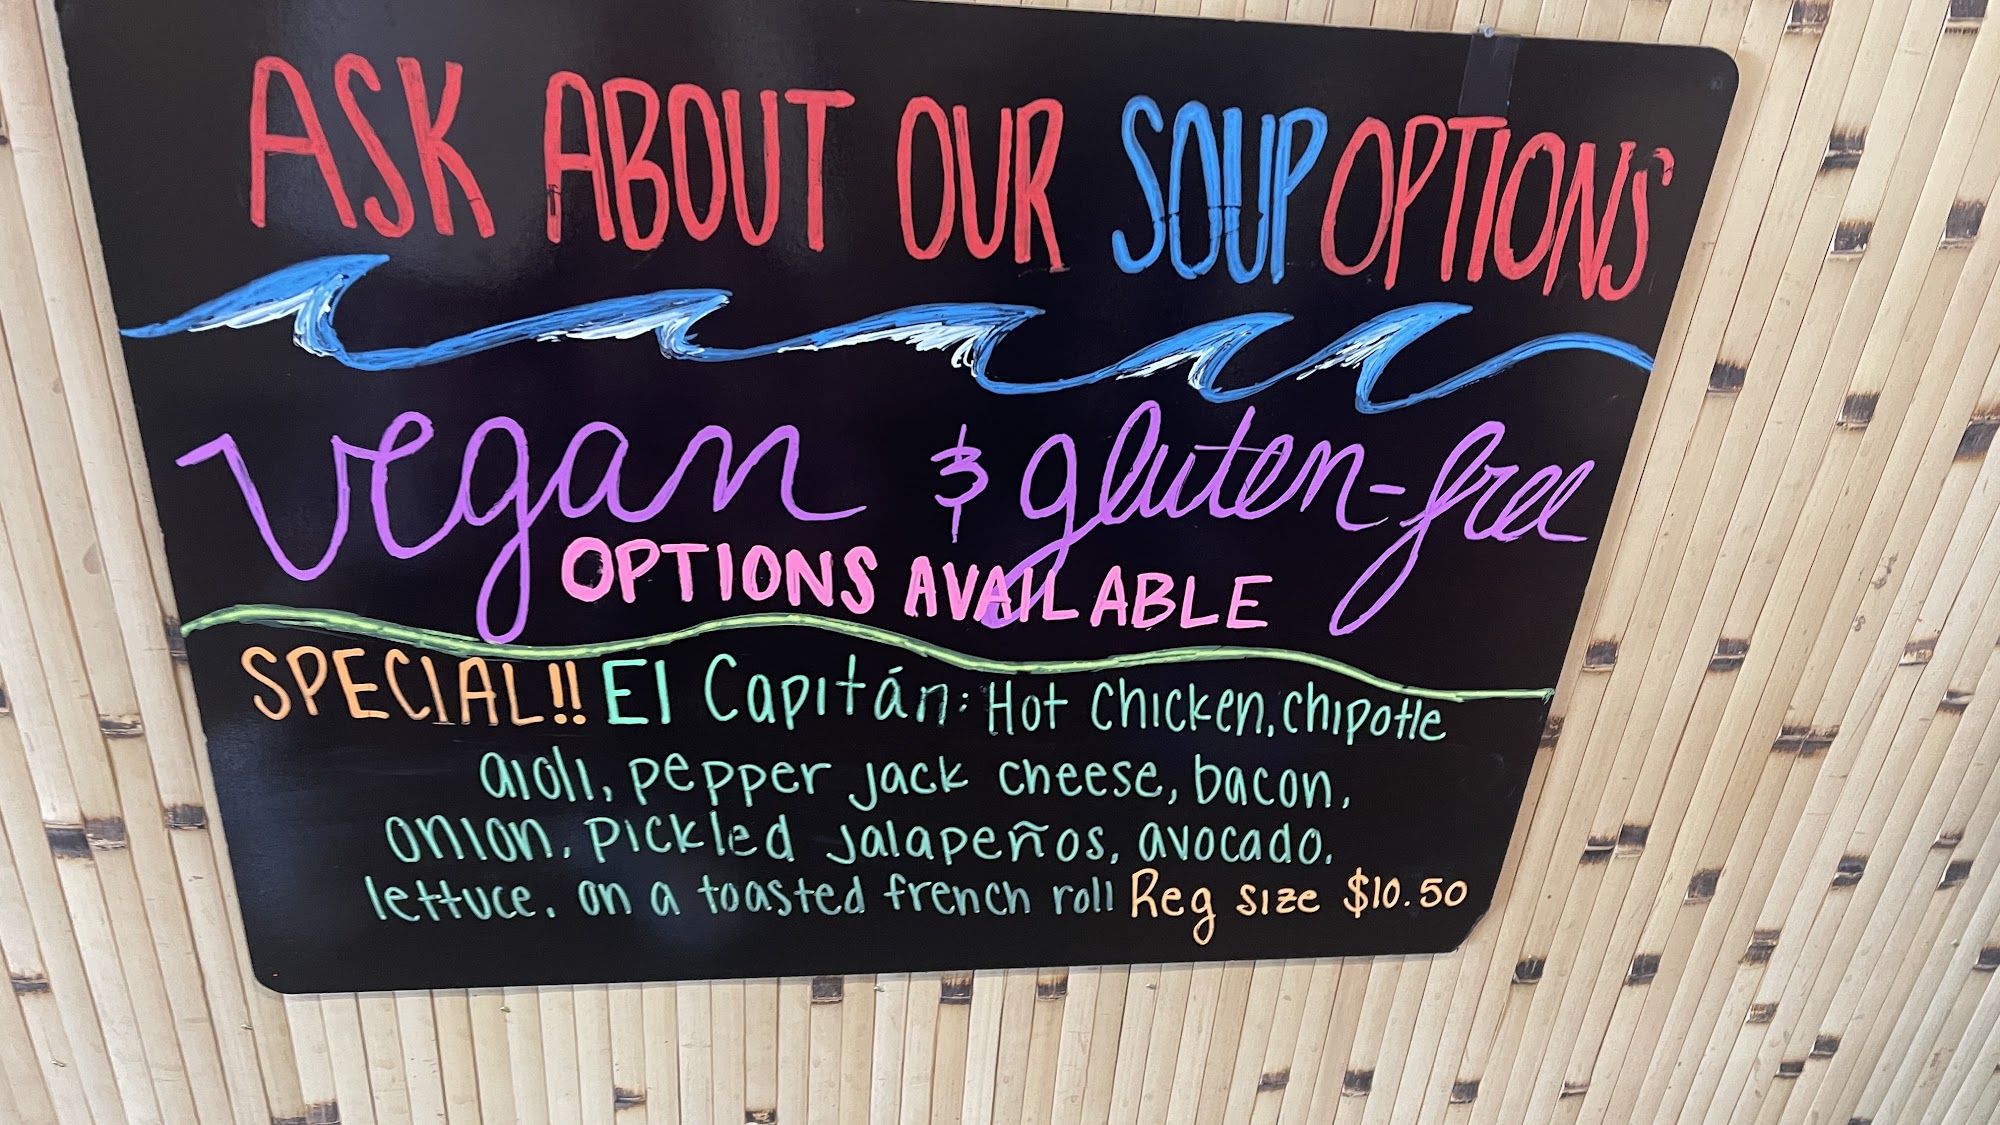 ASK ABOUT OUR SOUP OPTIONS
vegan & gluten-free
OPTIONS AVAILABLE
SPECIAL!! El Capitán: Hot Chicken, Chipotle
aioli, pepper jack cheese, bacon,
onion, pickled jalapeños, avocado,
lettuce. on a toasted french roll Reg size $10.50